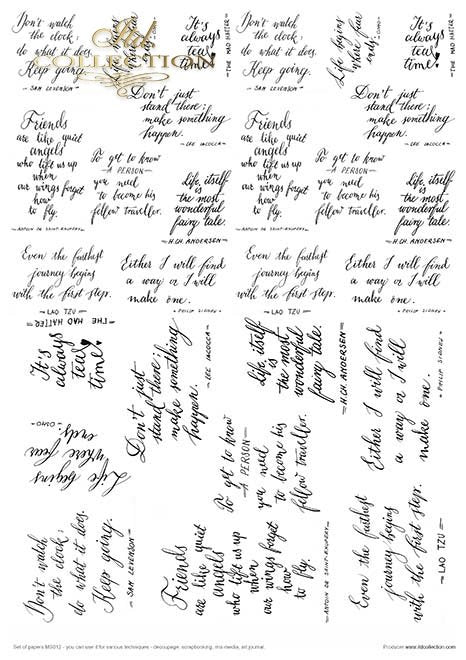 Don't watch
the clock;
do what it does.
Keep going.
— SAM LEVENSON —
Life begins
where fear
ends.
It's
always
tea
time!
— THE MAD HATTER —
COLLECTION
Don't watch
the clock;
do what it does.
Keep going.
— SAM LEVENSON —
Life begins
where fear
ends.
— OSHO —
It's
always
tea
time!
— THE MAD HATTER —
Don't just
stand there;
make something
happen.
— LEE IACOCCA —
Don't just
stand there;
make something
happen.
— LEE IACOCCA —
Friends
are like quiet
angels
who lift us up
when
our wings forget
how
to fly.
— ANTOIN DE SAINT-EXUPERY —
To get to know
— A PERSON —
you need
to become his
fellow traveller.
Life itself
is
the most
wonderful
fairy tale.
— H.CH. ANDERSEN —
Friends
are like quiet
angels
who lift us up
when
our wings forget
how
to fly.
— ANTOIN DE SAINT-EXUPERY —
To get to know
— A PERSON —
you need
to become his
fellow traveller.
Life itself
is
the most
wonderful
fairy tale.
— H.CH. ANDERSEN —
Even the farthest
journey begins
with the first step.
— LAO TZU —
Either I will find
a way or I will
make one.
— PHILIP SIDNEY —
Even the farthest
journey begins
with the first step.
— LAO TZU —
Either I will find
a way or I will
make one.
— PHILIP SIDNEY —
— THE MAD HATTER —
It's
always
tea
time!
Don't just
stand there;
make something
happen.
— LEE IACOCCA —
Life itself
is
the most
wonderful
fairy tale.
— H.CH. ANDERSEN —
Either I will find
a way or I will
make one.
— PHILIP SIDNEY —
Life begins
where fear
ends.
— OSHO —
To get to know
— A PERSON —
you need
to become his
fellow traveller.
Don't watch
the clock;
do what it does.
Keep going.
— SAM LEVENSON —
Friends
are like quiet
angels
who lift us up
when
our wings forget
how
to fly.
— ANTOIN DE SAINT-EXUPERY —
Even the farthest
journey begins
with the first step.
— LAO TZU —
Set of papers MS012 - you can use it for various techniques - decoupage, scrapbooking, mix media, art journal.
Producer www.itdcollection.com